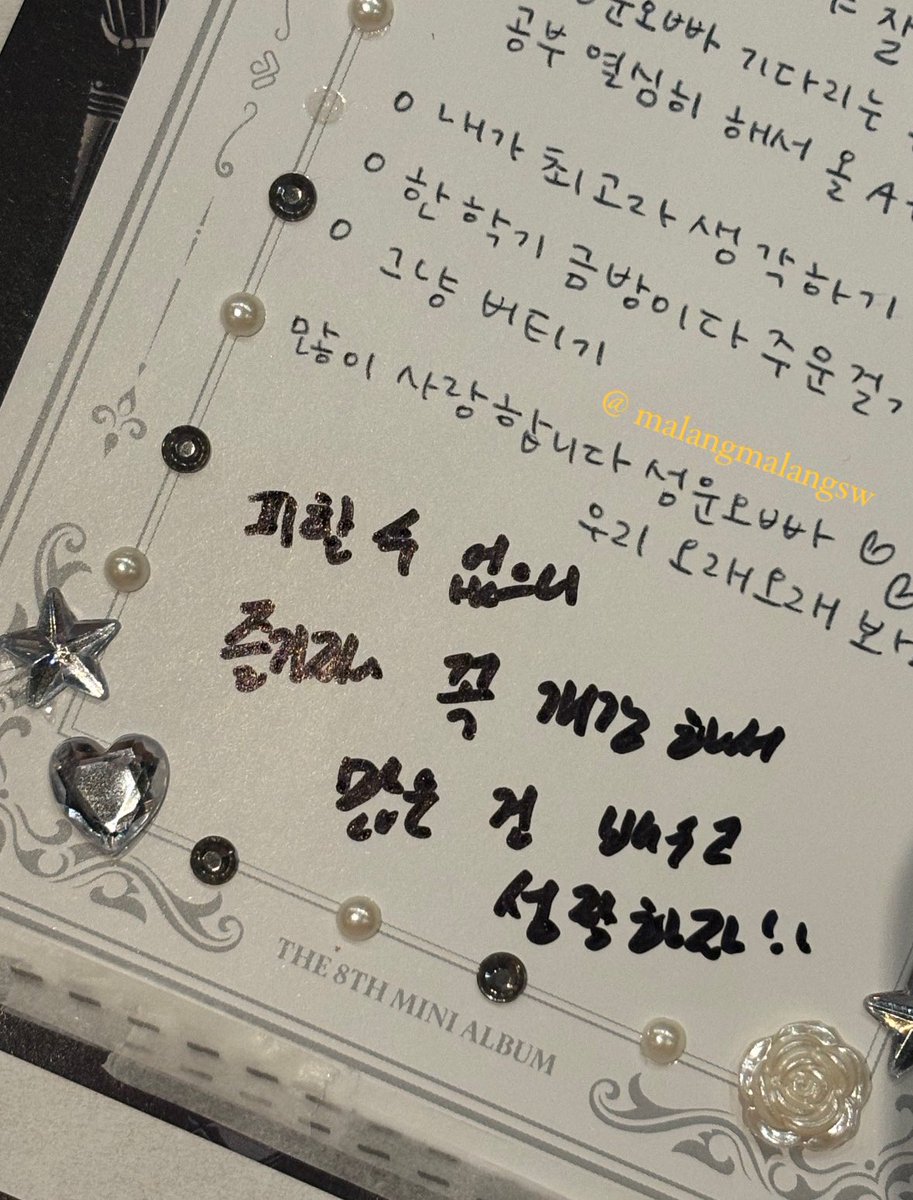 잘
성운오빠 기다리는
공부 열심히 해서 올 A+
o 내가 최고라 생각하기
o 한 학기 금방이다 주운걸
o 그냥 버티기
많이 사랑합니다 성운오빠 ♡♡
우리 오래오래
@ malangmalangsw
피할 수 없으니
즐겨라 꼭 개강 해서
많은 걸 배우고
성장하라!!
THE 8TH MINI ALBUM